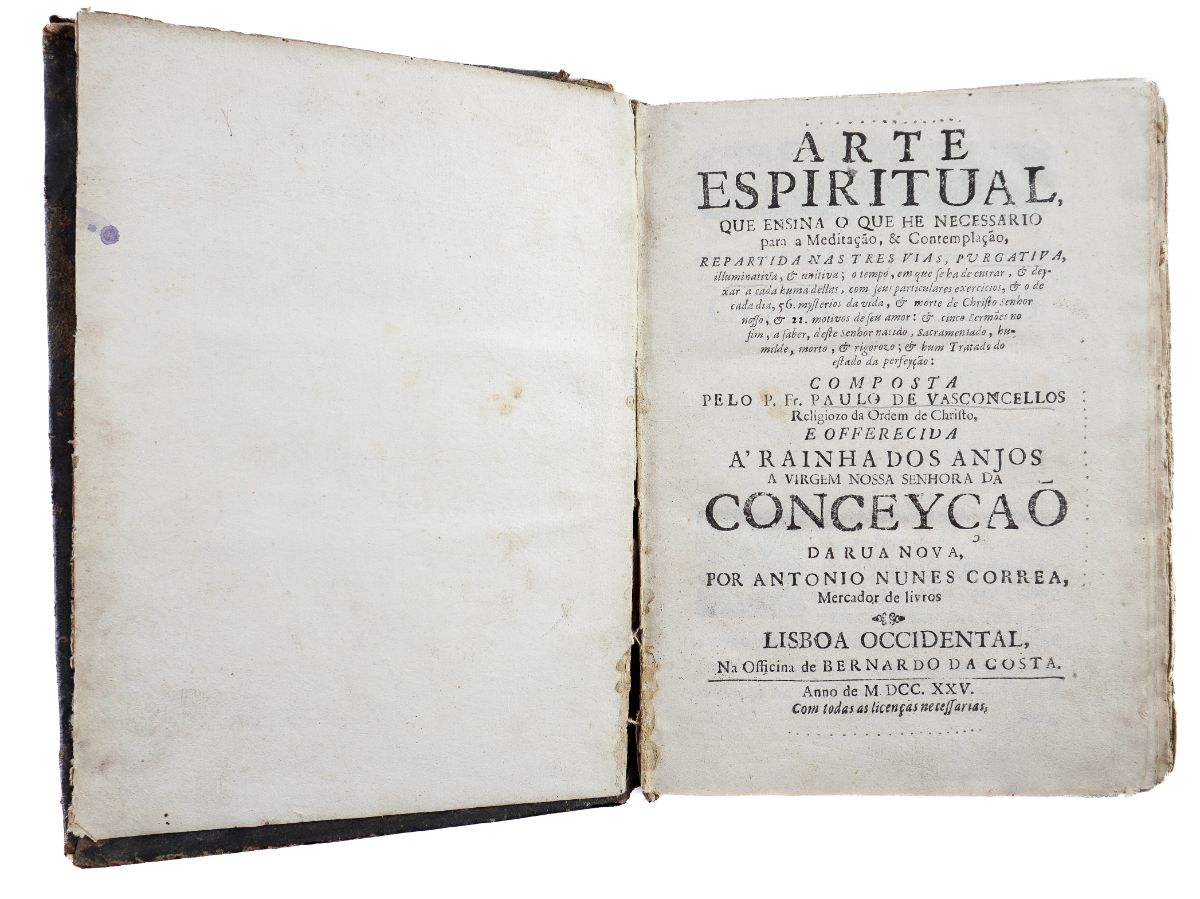 ARTE
ESPIRITUAL,
QUE ENSINA O QUE HE NECESSARIO
para a Meditação, & Contemplação,
REPARTIDA NAS TRES VIAS, PURGATIVA,
illuminativa, & unitiva; o tempo, em que se ha de entrar, & dey-
xar a cada huma dellas, com seus particulares exercicios, & o de
cada dia, 56. mysterios da vida, & morte de Christo Senhor
nosso, & 22. motivos de seu amor: & cinco Sermões no
fim, a saber, deste Senhor nacido, Sacramentado, hu-
milde, morto, & rigorozo; & hum Tratado do
estado da perfeyção:
COMPOSTA
PELO P. Fr. PAULO DE VASCONCELLOS
Religiozo da Ordem de Christo,
E OFFERECIDA
A' RAINHA DOS ANJOS
A VIRGEM NOSSA SENHORA DA
CONCEYÇAÕ
DA RUA NOVA,
POR ANTONIO NUNES CORREA,
Mercador de livros
LISBOA OCCIDENTAL,
Na Officina de BERNARDO DA COSTA.
Anno de M.DCC. XXV.
Com todas as licenças necessarias,